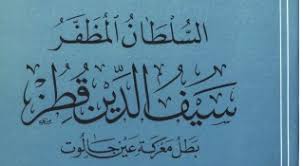 السُّلْطَانُ المُظَفَّرُ
سَيْفُ الدِّين قُطُز
بَطَلُ مَعْرَكَةِ عَيْنِ جَالُوت